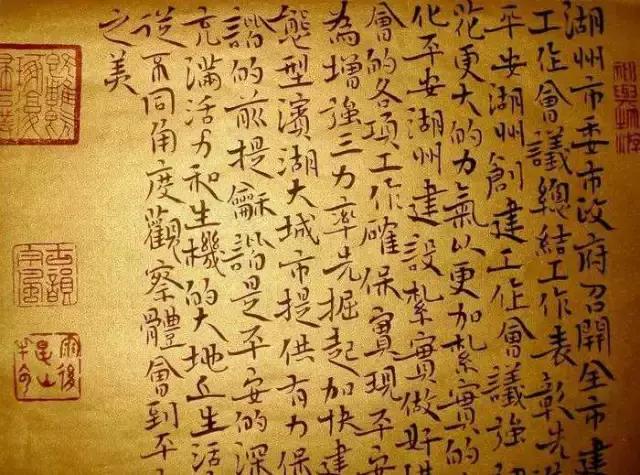 湖州市委市政府召開全市建
工作會議總結工作表彰先
平安湖州創建工作會議強
花更大的力氣以更加紮實的
化平安湖州建設紮實做好
會的各項工作確保實現平安
為增強三力率先掘起加快建
態型濱湖大城市提供有力保
諧的前提龢諧是平安的深
充滿活力和生機的大地上生活
從不同角度觀察體會到平
之美